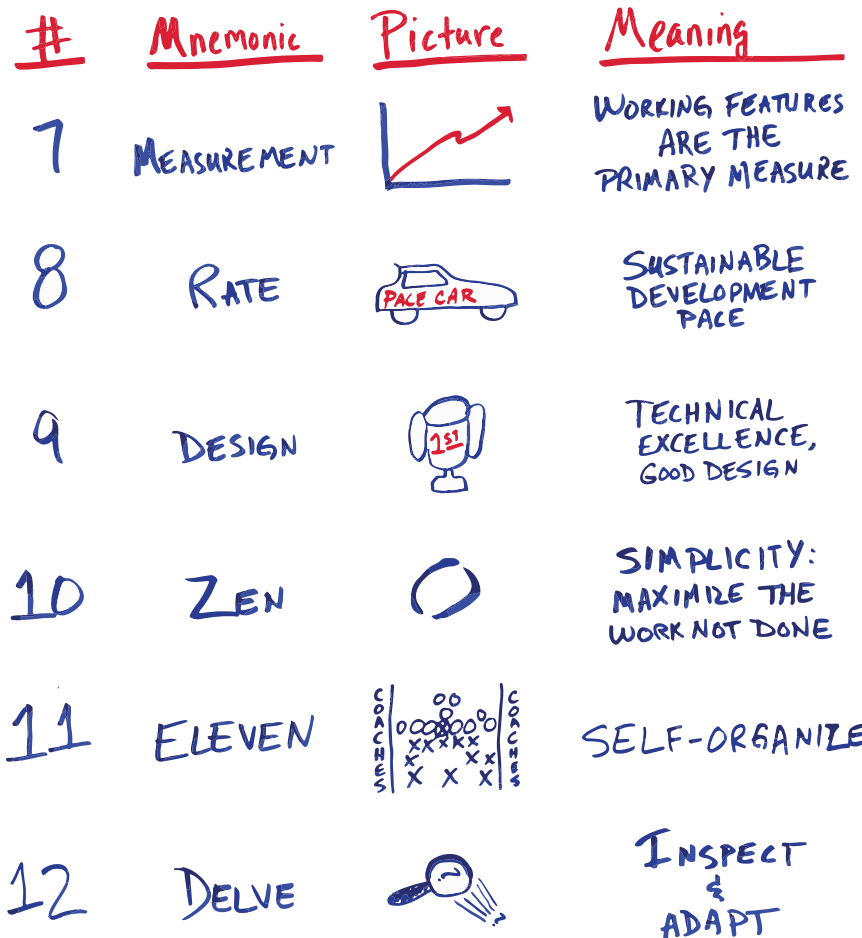 # Mnemonic Picture Meaning
7 MEASUREMENT WORKING FEATURES
ARE THE
PRIMARY MEASURE
8 RATE PACE CAR SUSTAINABLE
DEVELOPMENT
PACE
9 DESIGN 1ST TECHNICAL
EXCELLENCE,
GOOD DESIGN
10 ZEN SIMPLICITY:
MAXIMIZE THE
WORK NOT DONE
11 ELEVEN COACHES COACHES SELF-ORGANIZE
12 DELVE INSPECT
&
ADAPT